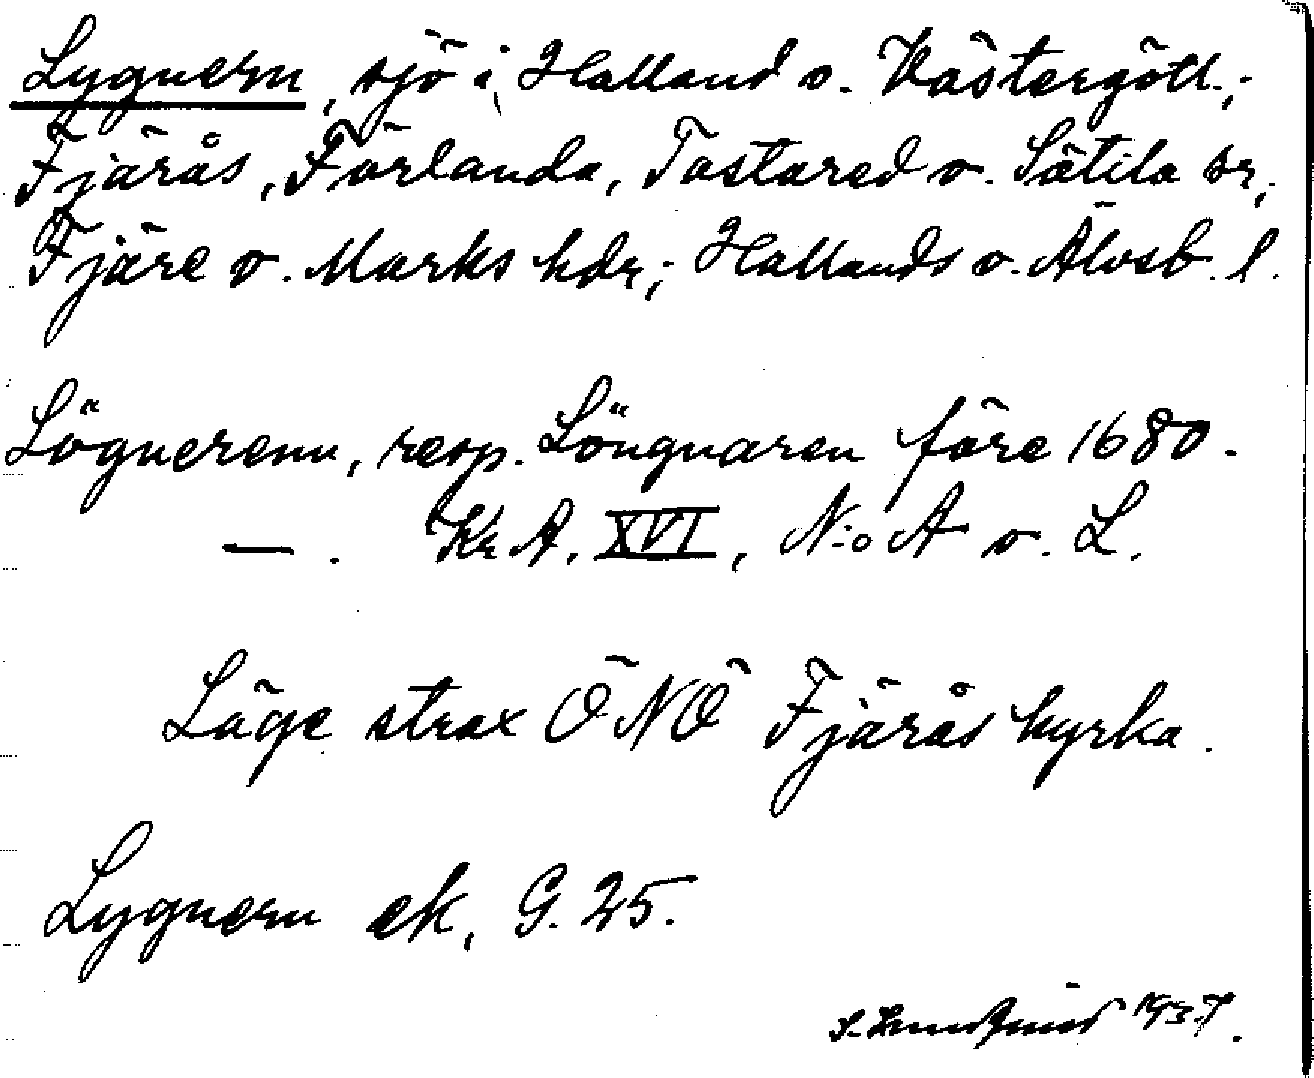 Lygnern, sjö i Halland o. Västergötl.;
Fjärås, Förlanda, Tostared o. Sätila sr,
Fjäre o. Marks hdr; Hallands o. Älvsb. l.
Lögnerenn, resp. Löngnaren före 1680.
—. Kr A. XVI, N:o A o. L.
Läge strax ÖNÖ Fjärås kyrka.
Lygnern ek, G. 25.
S. 1937.